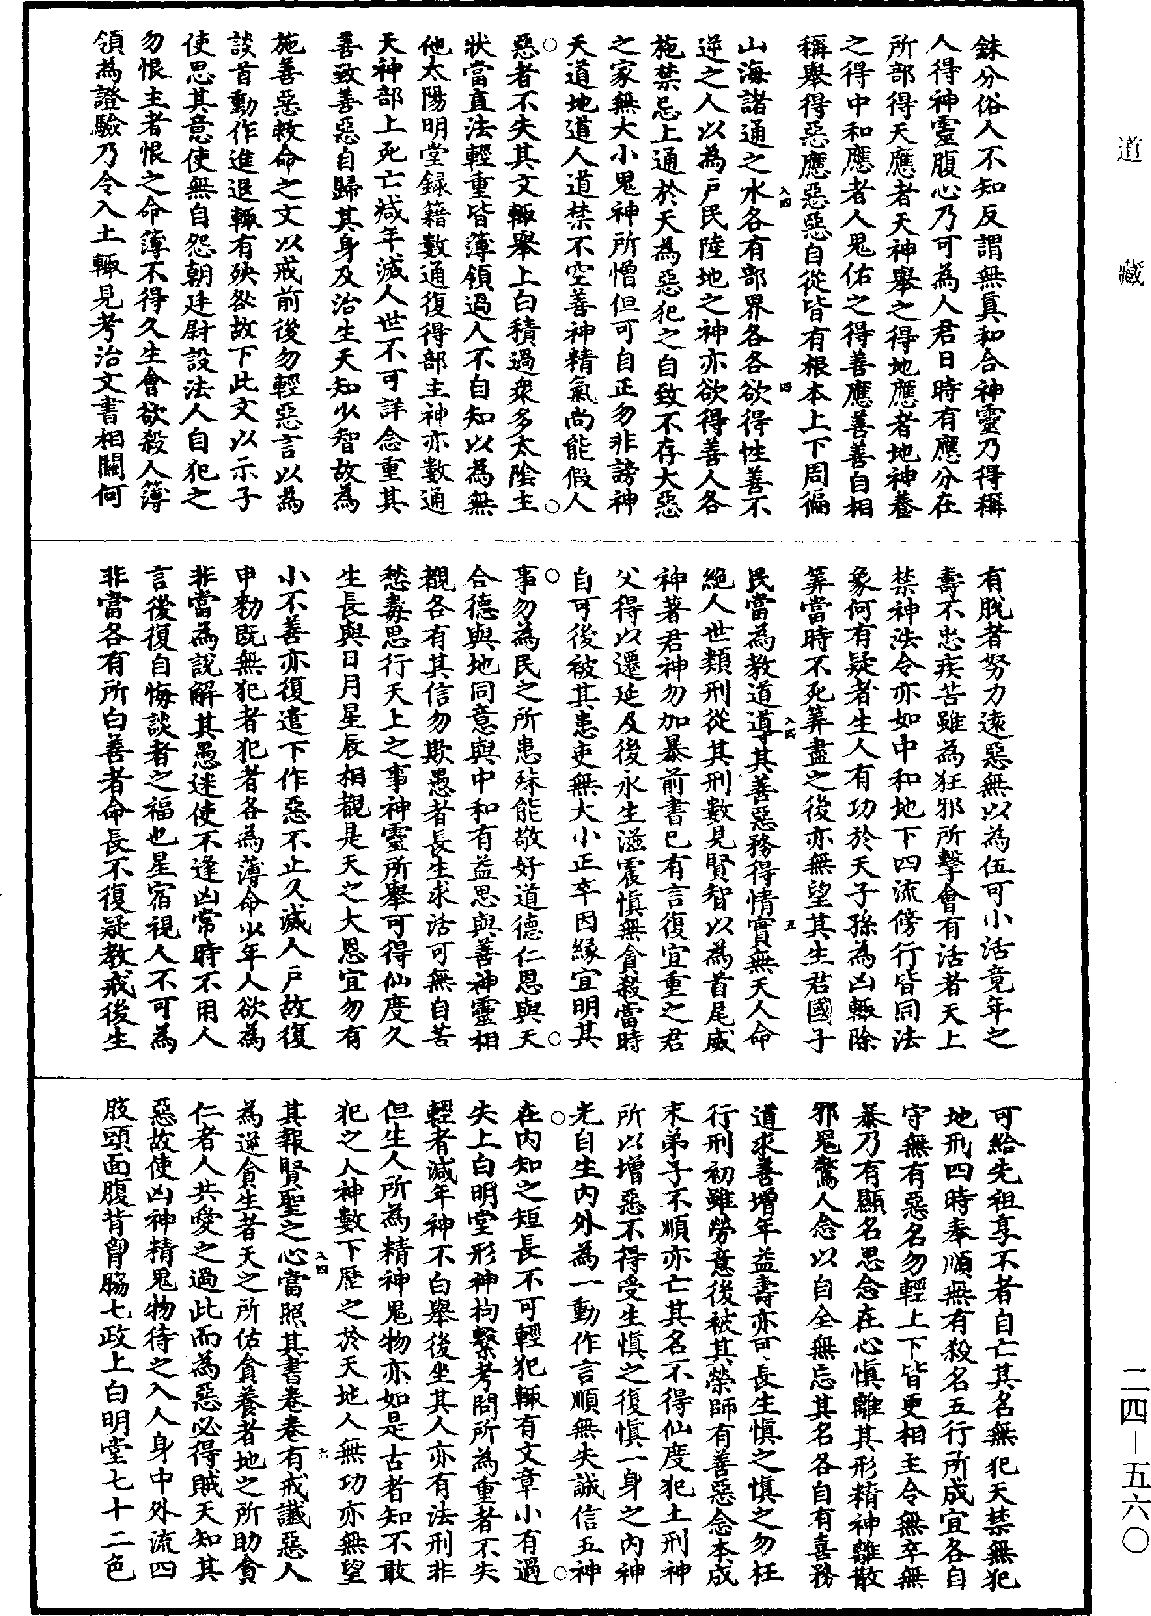 道藏
銖分俗人不知反謂無真和合神靈乃得稱
人得神靈腹心乃可為人君日時有應分在
所部得天應者天神舉之得地應者地神養
之得中和應者人鬼佑之得善應善善自相
稱舉得惡應惡惡自從皆有根本上下周徧
山海諸通之水各有部界各各欲得性善不
逆之人以為戶民陸地之神亦欲得善人各
施禁忌上通於天為惡犯之自致不存大惡
之家無大小鬼神所憎但可自正勿非謗神
天道地道人道禁不空善神精氣尚能假人
惡者不失其文輒舉上白積過衆多太陰主
狀當直法輕重皆簿領過人不自知以為無
他太陽明堂録籍數通復得部主神亦數通
天神部上死亡減年滅人世不可詳念重其
善致善惡自歸其身及治生天知少智故為
施善惡救命之文以戒前後勿輕惡言以為
談首動作進退輒有殃咎故下此文以示子
使思其意使無自怨朝廷尉設法人自犯之
勿恨主者恨之命簿不得久生會欲殺人簿
領為證驗乃令入土輒見考治文書相關何
有脫者努力遠惡無以為伍可小活竟年之
壽不忠疾苦雖為狂邪所擊會有活者天上
禁神法令亦如中和地下四流傍行皆同法
象何有疑者生人有功於天子孫為凶輒除
筭當時不死筭盡之後亦無望其生君國子
民當為教道導其善惡務得情實無天人命
絕人世類刑從其刑數見賢智以為首尾威
神著君神勿加暴前書已有言復宜重之君
父得以遷延及後永生滋震慎無貪殺當時
自可後被其患吏無大小正卒因緣宜明其
事勿為民之所患殊能敬好道德仁恩與天
合德與地同意與中和有益思與善神靈相
觀各有其信勿欺愚者長生求活可無自苦
愁毒思行天上之事神靈所舉可得仙度久
生長與日月星辰相觀是天之大恩宜勿有
小不善亦復遣下作惡不止久滅人戶故復
申勑既無犯者犯者各為薄命少年人欲為
非當為說解其愚迷使不逢凶常時不用人
言後復自悔談者之福也星宿視人不可為
非當各有所白善者命長不復疑教戒後生
可給先祖享不者自亡其名無犯天禁無犯
地刑四時奉順無有殺名五行所成宜各自
守無有惡名勿輕上下皆更相主令無卒無
暴乃有顯名思念在心慎離其形精神離散
邪鬼驚人念以自全無忘其名各自有喜務
道求善增年益壽亦可長生慎之慎之勿枉
行刑初雖勞意後被其榮師有善惡念本成
末弟子不順亦亡其名不得仙度犯土刑神
所以增惡不得受生慎之復慎一身之內神
光自生內外為一動作言順無失誠信五神
在內知之短長不可輕犯輒有文章小有過
失上白明堂形神拘繫考問所為重者不失
輕者減年神不白舉後坐其人亦有法刑非
但生人所為精神鬼物亦如是古者知不敢
犯之人神數下歷之於天地人無功亦無望
其報賢聖之心當照其書卷卷有戒讖惡人
為逆貪生者天之所佑貪養者地之所助貪
仁者人共愛之過此而為惡必得賊天知其
惡故使凶神精鬼物待之入人身中外流四
肢頭面腹背胷脇七政上白明堂七十二色
二四—五六〇